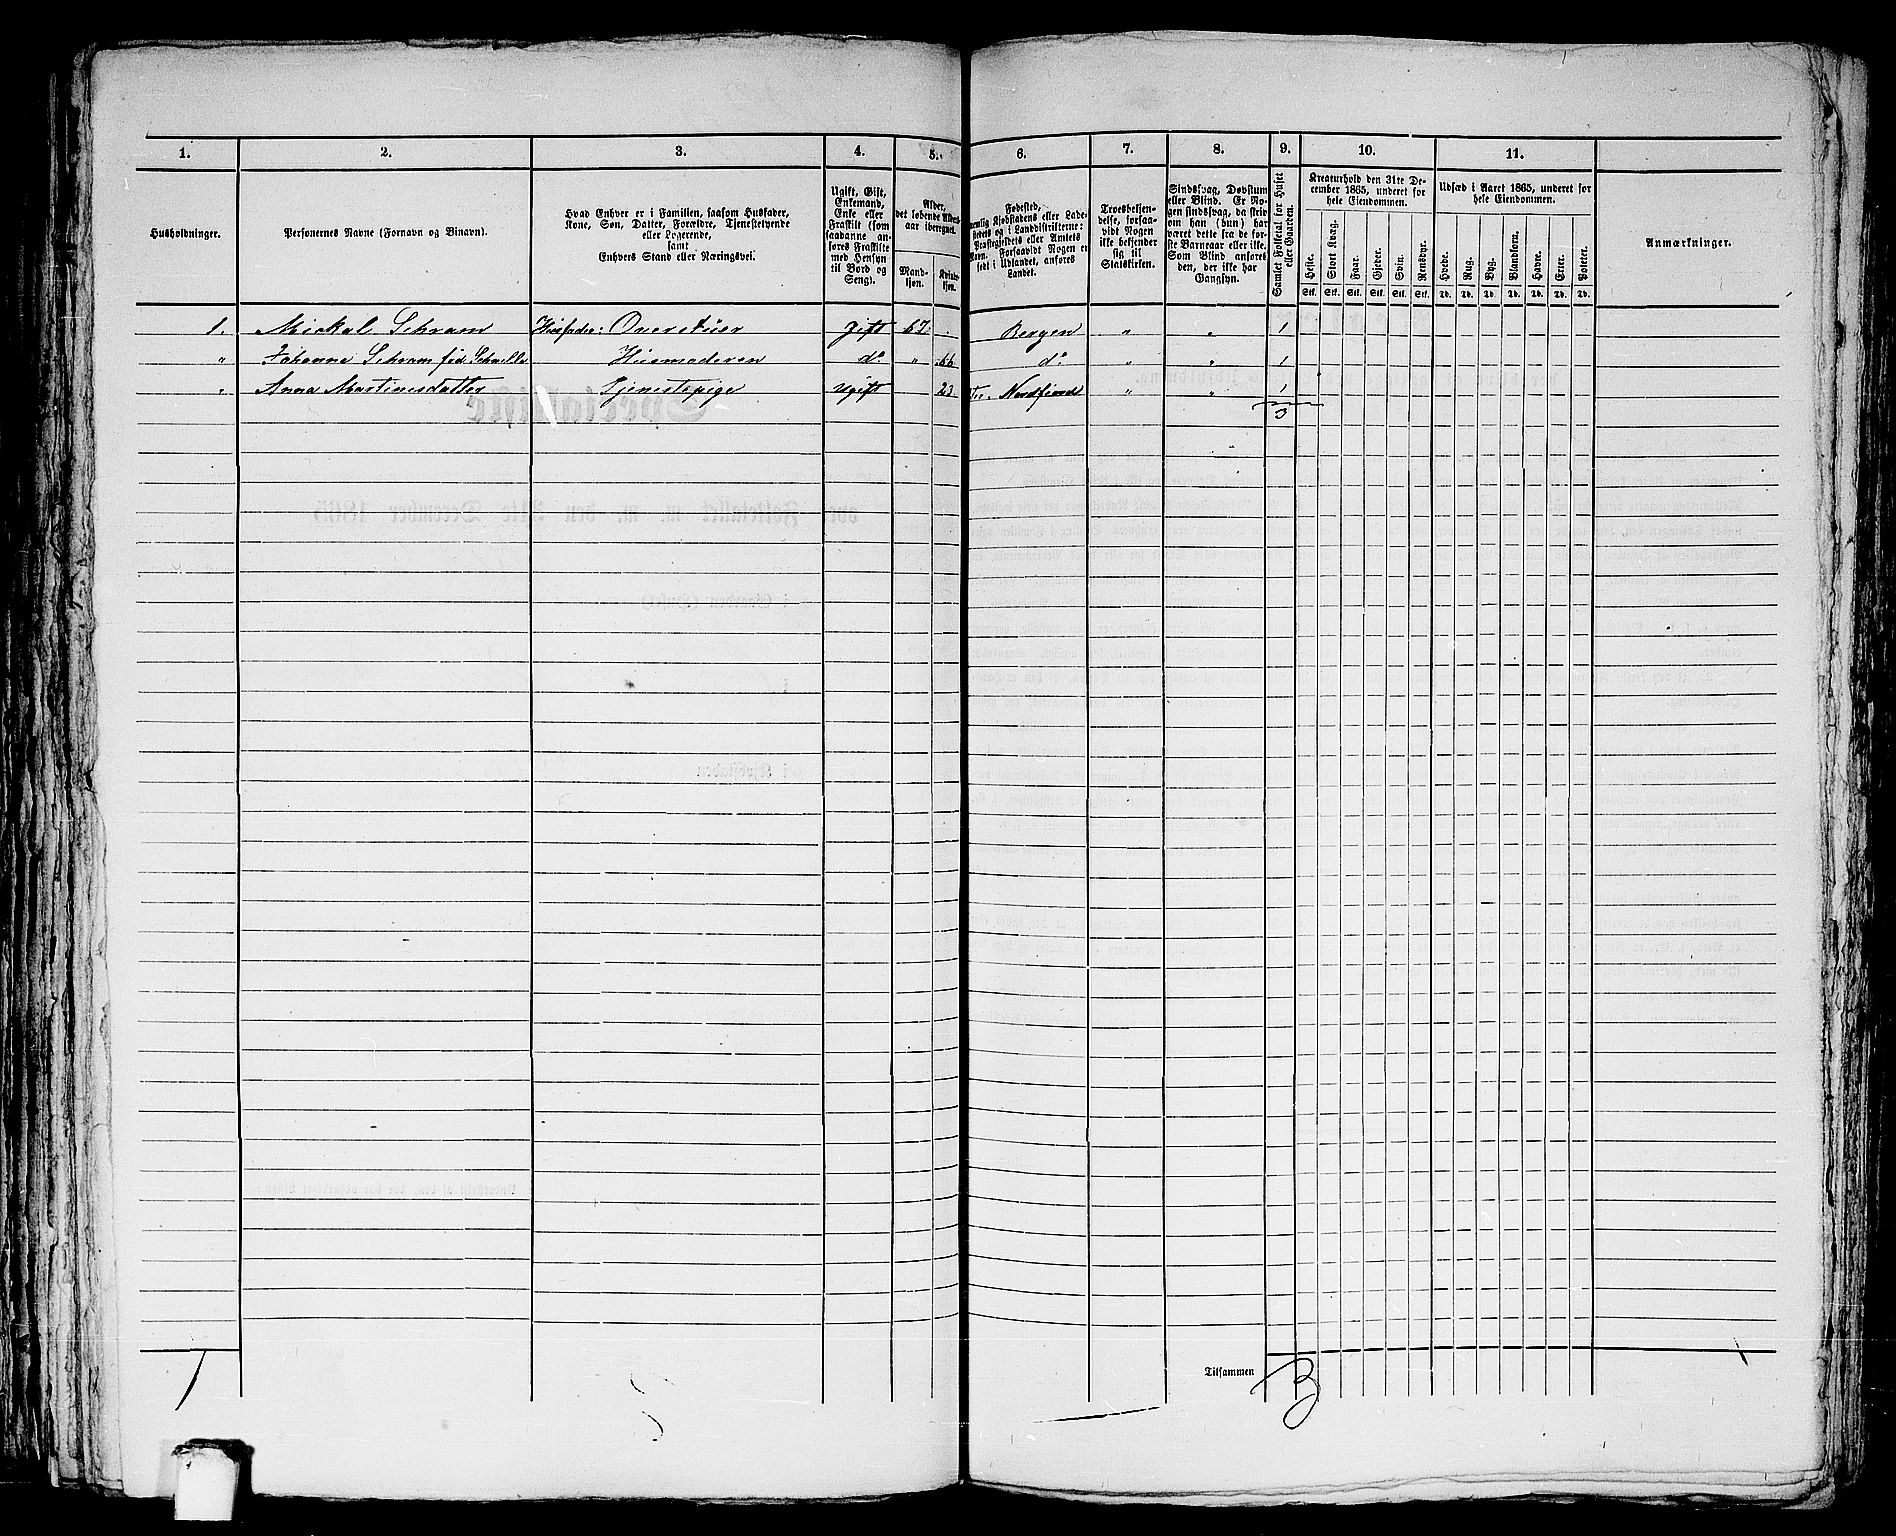 1. 2. 3. 4. 5. 6. 7. 8. 9. 10. 11.
Husholdninger.
Personernes Navne (Fornavn og Binavn).
Hvad Enhver er i Familien, saasom Husfader,
Kone, Søn, Datter, Forældre, Tjenestetyende
eller Logerende,
samt
Enhvers Stand eller Næringsvei.
Ugift, Gift,
Enkemand,
Enke eller
Fraskilt (som
saadanne an-
føres Fraskilte
med Hensyn
til Bord og
Seng).
Alder,
det løbende Alders-
aar iberegnet.
Mand-
kjøn.
Kvinde-
kjøn.
Fødested,
nemlig Kjøbstadens eller Lade-
stedets og i Landdistrikterne:
Præstegjeldets eller Amtets
Navn. Forsaavidt Nogen er
født i Udlandet, anføres
Landet.
Troesbekjen-
delse, forsaa-
vidt Nogen
ikke bekjender
sig til
Statskirken.
Sindssvag, Døvstum
eller Blind. Er No-
gen sindssvag, da skriv
om han (hun) har
været dette fra de før-
ste Barneaar eller ikke.
Som Blind anføres
den, der ikke har
Gangsyn.
Samlet Folketal for Huset
eller Gaarden.
Kreaturhold den 31te De-
cember 1865, underet for
hele Eiendommen.
Heste. Stort Kvæg. Faar. Gjeder. Svin. Rensdyr.
Stk. Stk. Stk. Stk. Stk. Stk.
Udsæd i Aaret 1865, underet for
hele Eiendommen.
Hvede. Rug. Byg. Blandkorn. Havre. Erter. Poteter.
Td. Td. Td. Td. Td. Td. Td.
Anmærkninger.
1. Mickal Schram Husfader: Overstüer gift 67. Bergen " " 1
" Johanne Schram fød Husmoderen do. " 66 do. " " 1
" Anna Martinesdatter Tjenestepige Ugift 23. Nordfiord " " 1
3
Tilsammen 3
1